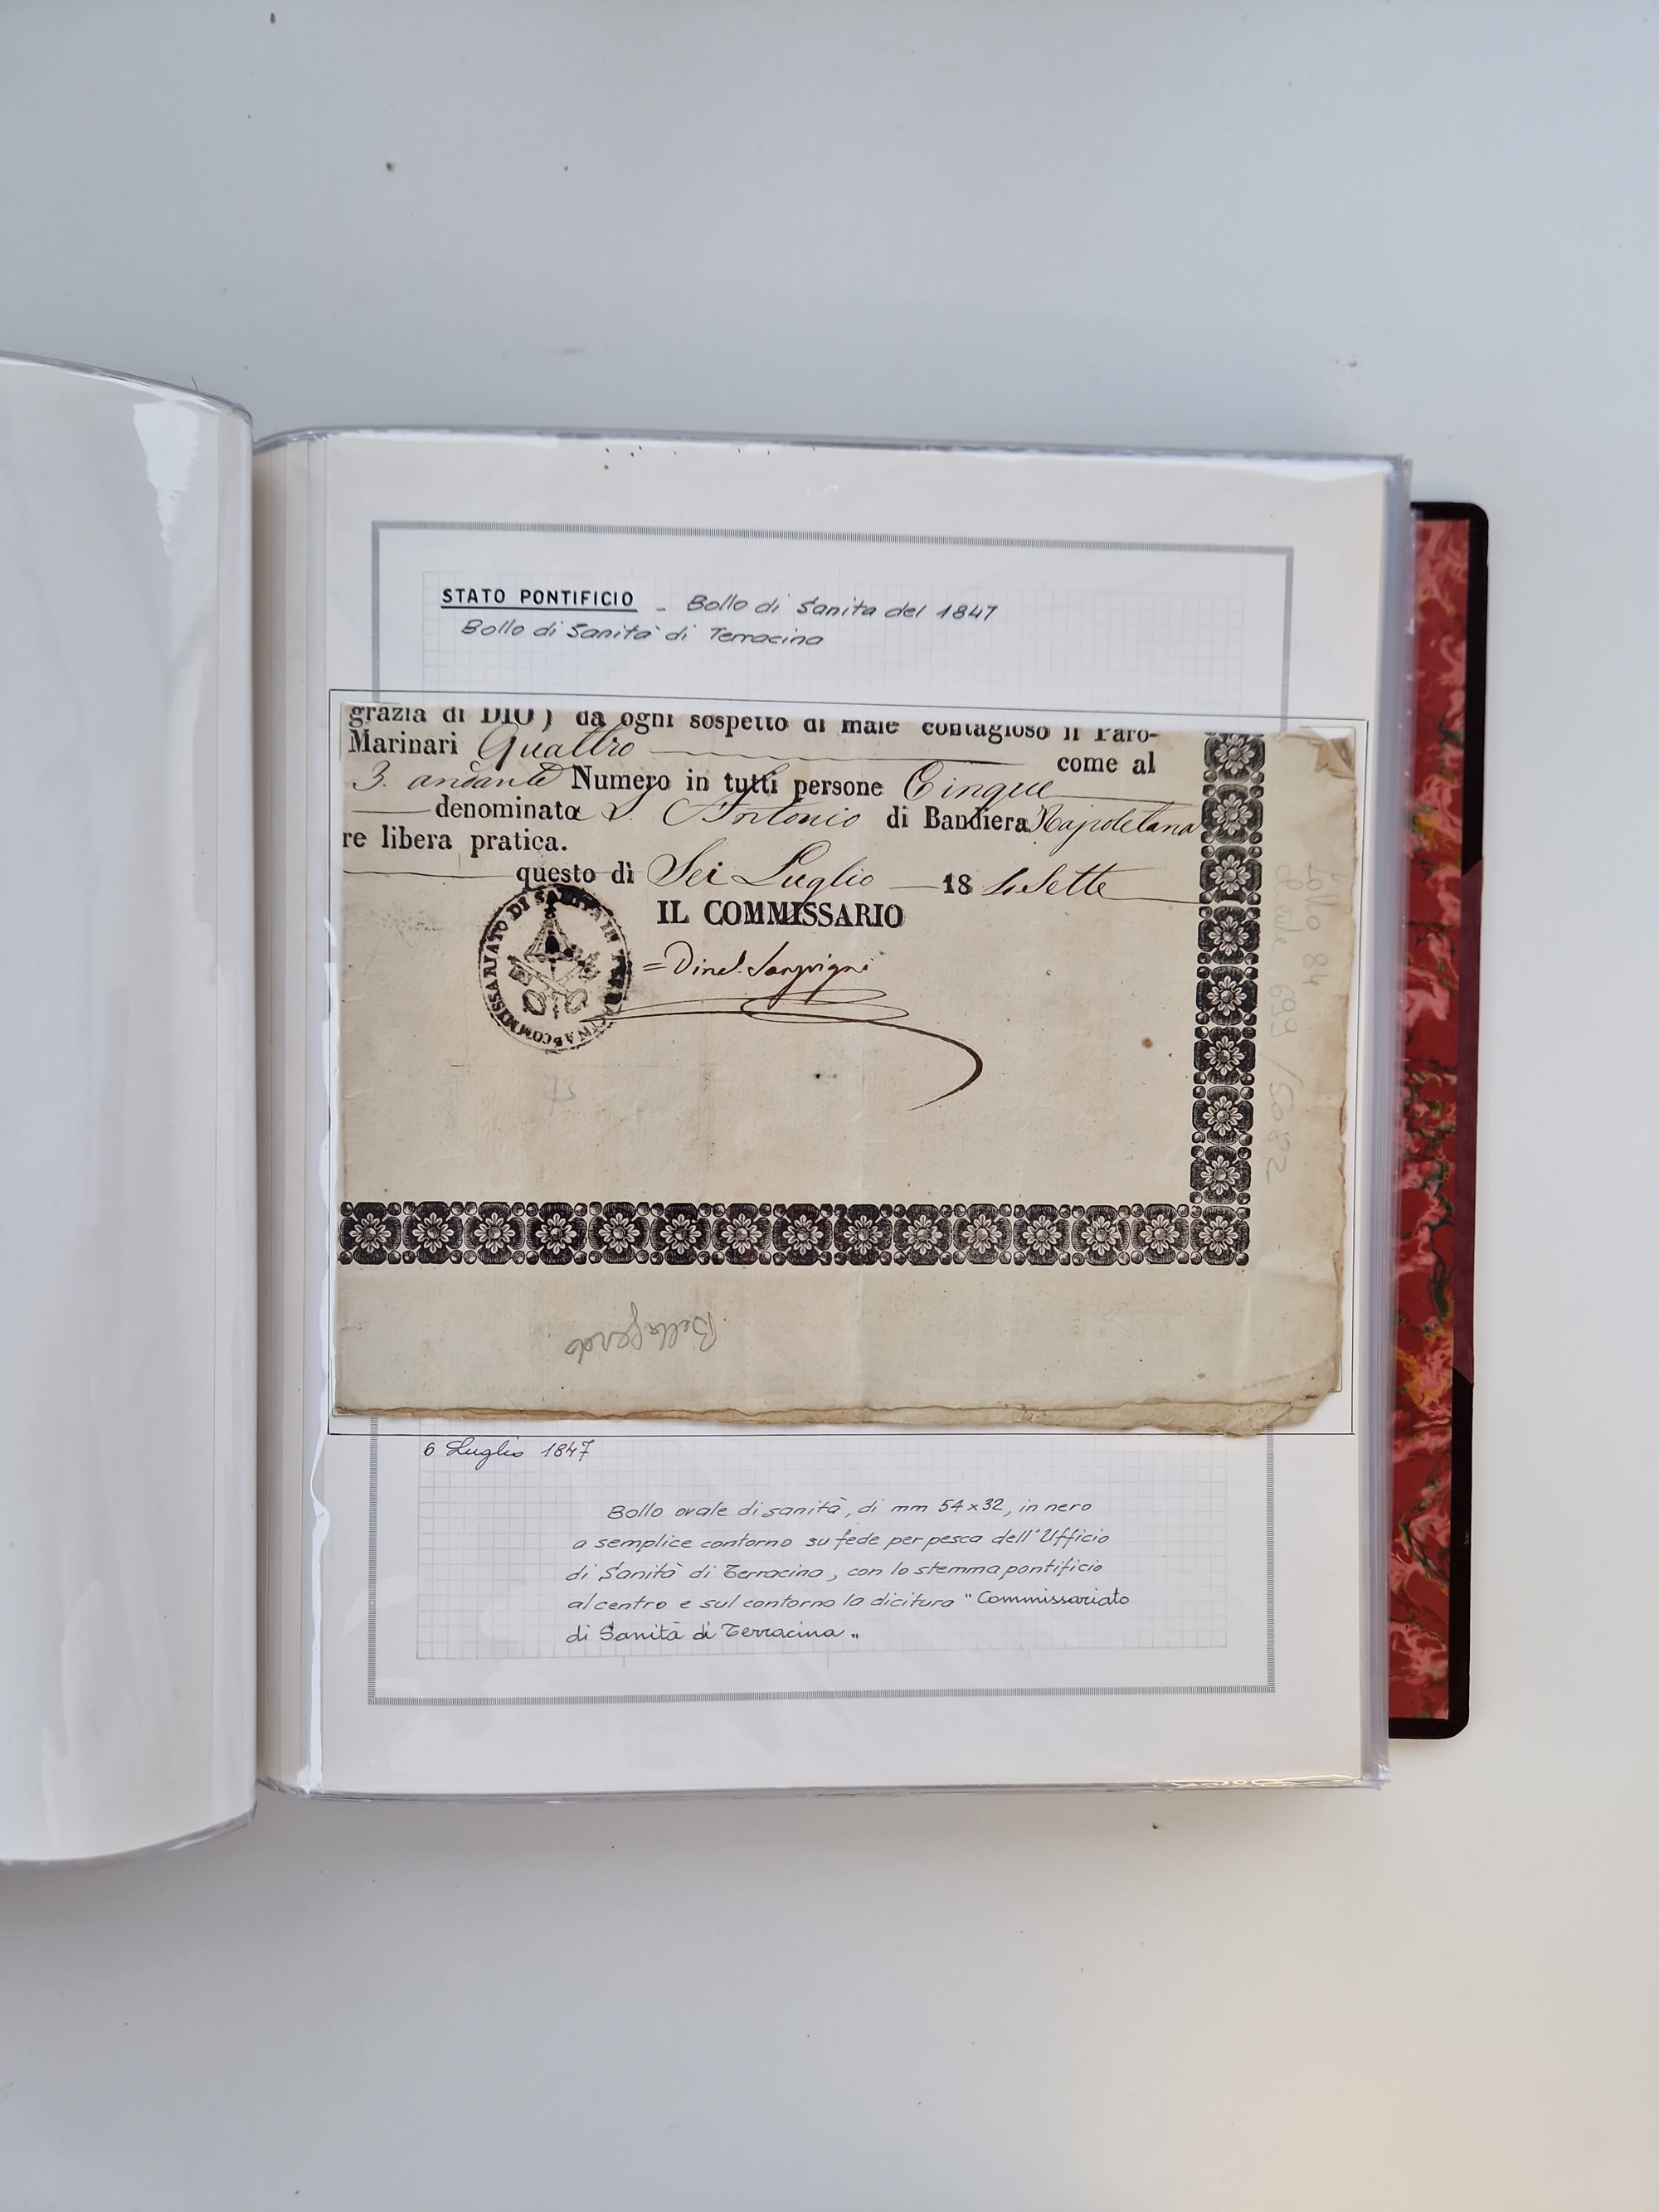 STATO PONTIFICIO - Bollo di Sanita del 1847
Bollo di Sanità di Terracina
grazia di DIO) da ogni sospetto di male contagioso il Paro-
Marinari Quattro come al
3. andante Numero in tutti persone Cinque
denominato S. Antonio di Bandiera Napoletana
re libera pratica.
questo dì Sei Luglio 18 4 Sette
IL COMMISSARIO
COMMISSARIATO DI SANITA IN TERRACINA
6 Luglio 1847
Bollo ovale di sanità, di mm 54x32, in nero
a semplice contorno su fede per pesca dell'Ufficio
di Sanità di Terracina, con lo stemma pontificio
al centro e sul contorno la dicitura "Commissariato
di Sanità di Terracina"